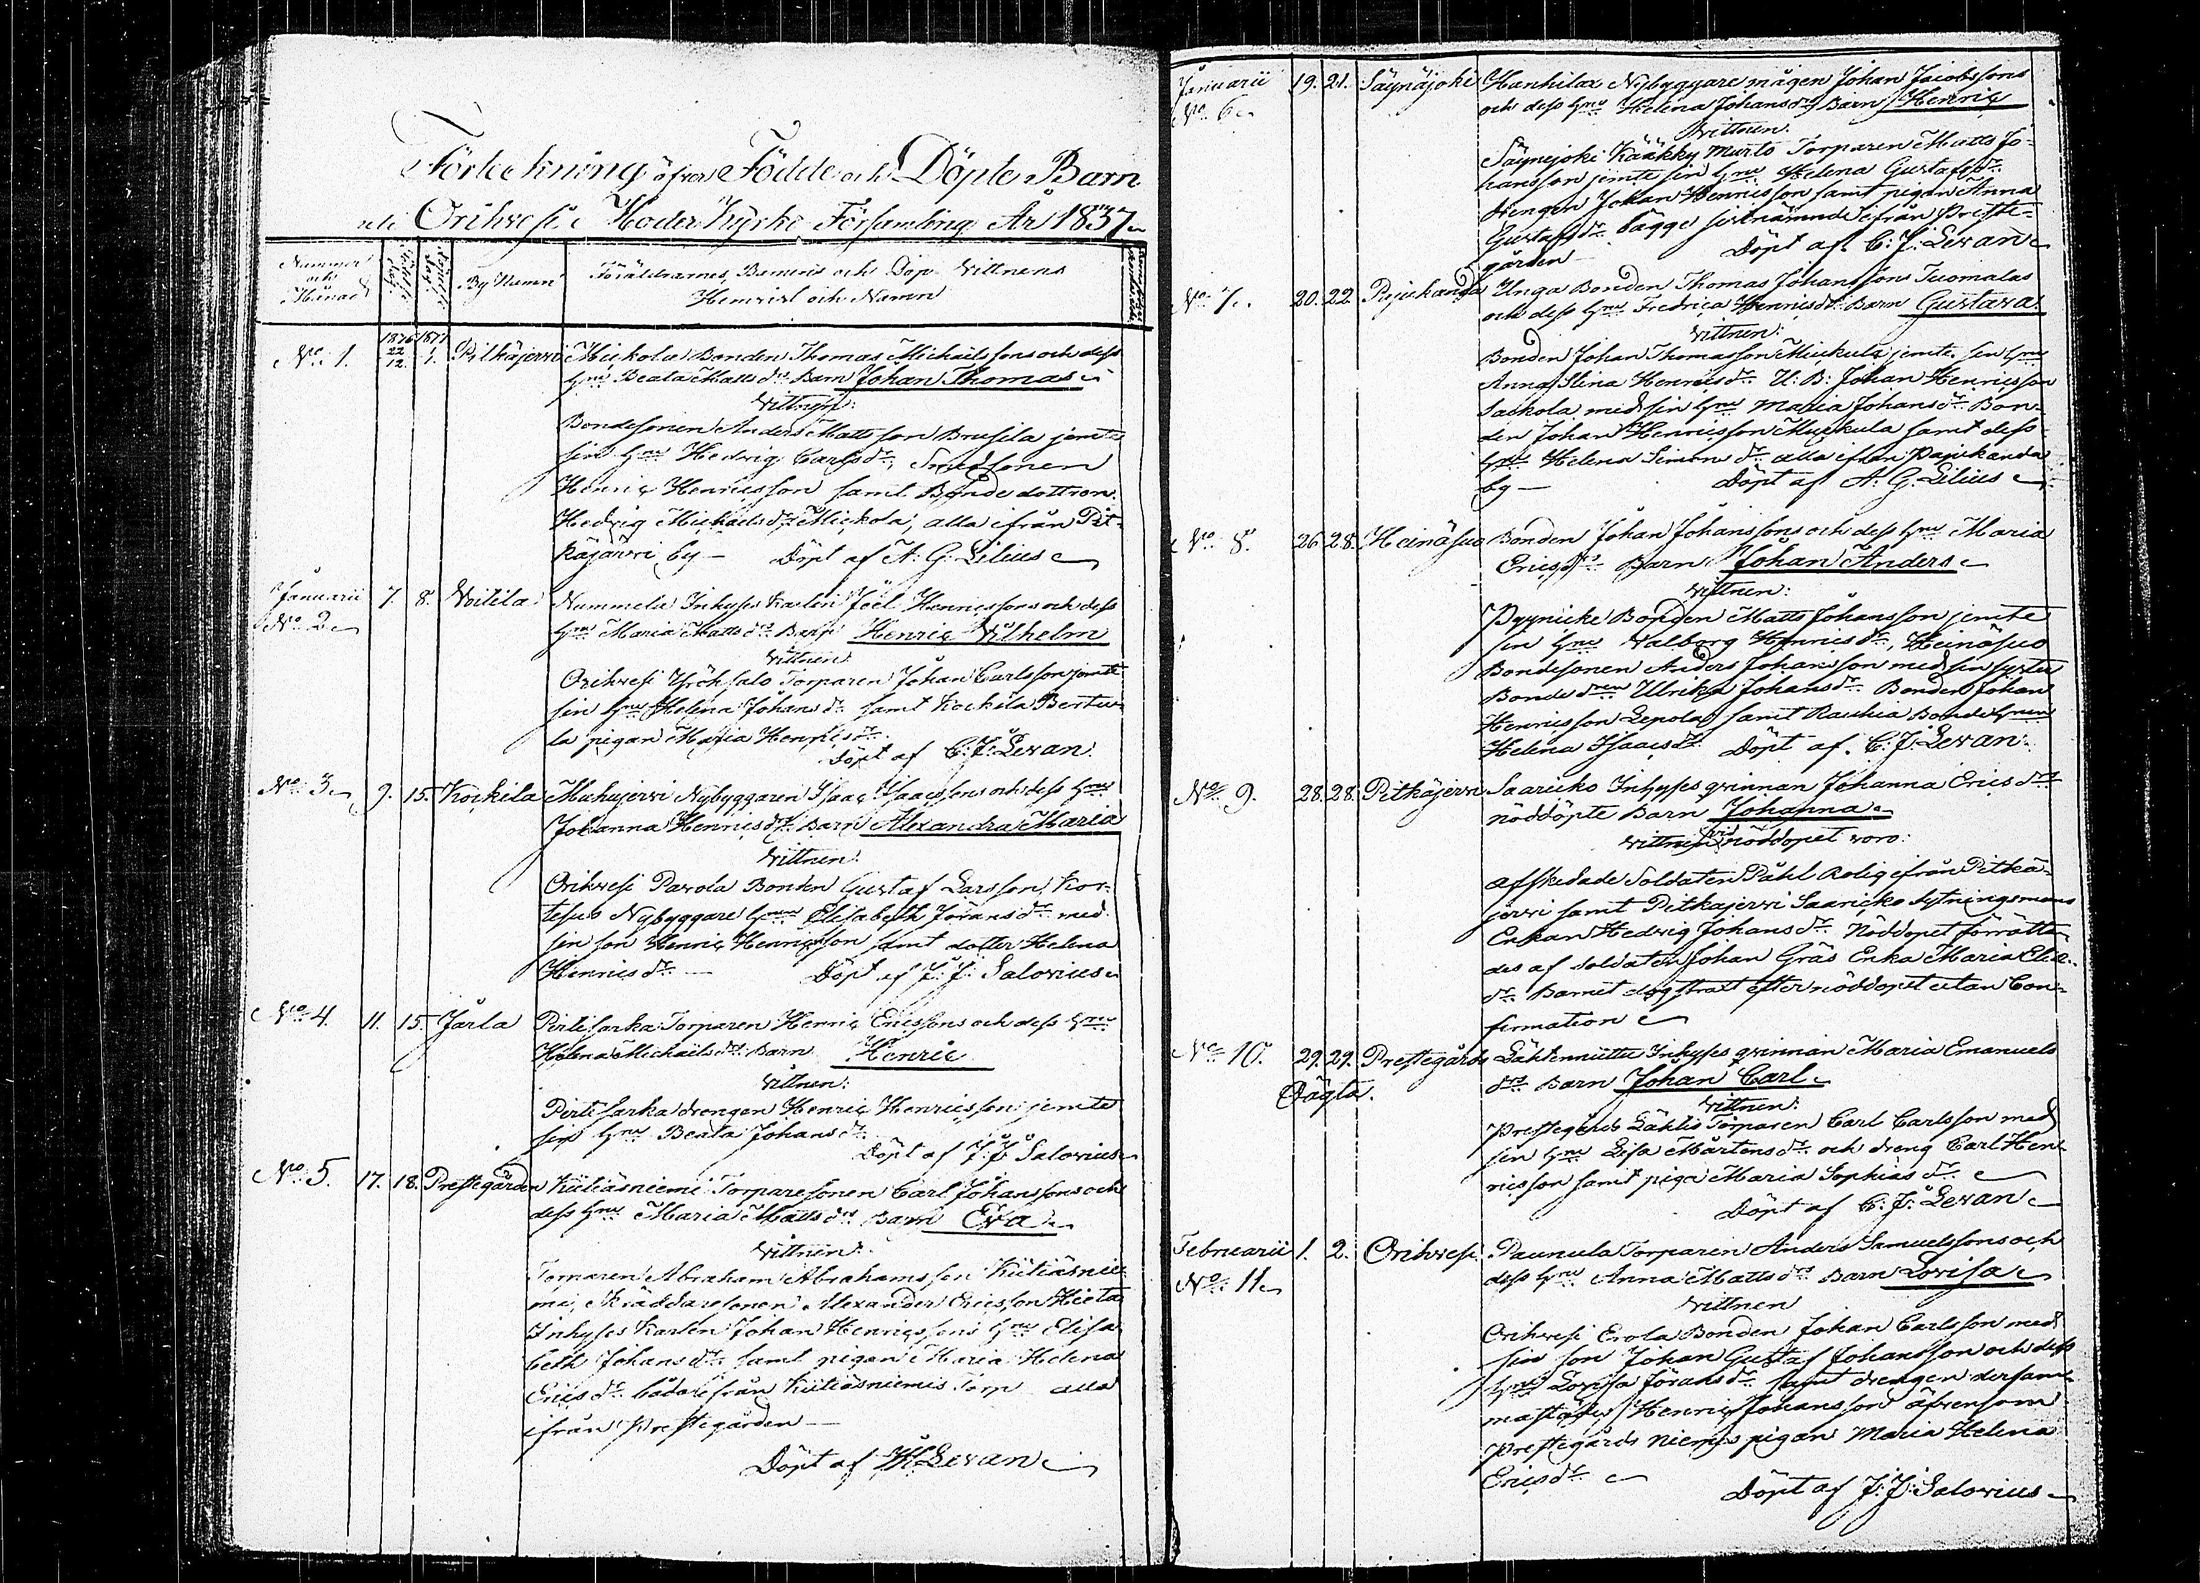 Förteckning öfver Födde och Döpte Barn
uti Orihvesi Moder Kyrko Församling År 1837
Nummer och Månad
Födelse Dag
Döpelse Dag
By Namn
Föräldrarnes, Barnens och Dop Vittnens
Hemvist och Namn
No 1. 1836 22/12. 1837 1. Pitkäjervi Mickola Bonden Thomas Michaelssons och dess
hru Beata Matts dr Barn Johan Thomas
Vittnen:
Bondesonen Anders Mattsson Brusila jemte
sin hru Hedvig Carls dr,
Henric Henricsson samt Bonde dottren
Hedvig Michaels dr Mickola, alla ifrån Pit-
käjärvi by — Döpt af A. G. Lilius
Januarii 7. 8. Voitila Nummela Inhyses Karlen Joel Henricssons och dess
No 2 hru Maria Matts dr Barn Henric Wilhelm
Vittnen
Orihvesi Yröhsalo Torparen Johan Carlsson jemte
sin hru Helena Johans dr samt Kockila Bertu-
la pigan Maria Henrics dr.
Döpt af C. J. Levan.
No 3 9. 15. Kockila Muhujervi Nybyggaren Isaac Isaacssons och dess hru
Johanna Henrics dr Barn Alexandra Maria
Vittnen:
Orihvesi Pavola Bonden Gustaf Larsson, Kor-
tesuo Nybyggare hrun Elisabeth Jörans dr med
sin son Henric Henricsson samt dotter Helena
Henrics dr — Döpt af J. J. Salovius
No 4. 11. 15. Järla Pirtisarka Torparen Henric Ericssons och dess hru
Helena Michaels dr Barn Henric
Vittnen:
Pirtisarka drengen Henric Henricsson jemte
sin hru Beata Johans dr
Döpt af J. J. Salovius
No 5. 17. 18. Prestegården Kutiäsniemi Torparesonen Carl Johanssons och
dess hru Maria Matts dr Barn Eva
Vittnen:
Torparen Abraham Abrahamsson Kutiäsnie-
mi, Skräddaresonen Alexander Ericsson Hieta
Inhyses Karlen Johan Henricssons hru Elisa
beth Johans dr samt pigan Maria Helena
Erics dr båda ifrån Kutiäsniemis Torp alla
ifrån Prestegården —
Döpt af Levan
Januarii 19. 21. Säynäjoki Hanhilax Nybyggare mågen Johan Jacobssons
No 6 och dess hru Helena Johans dr Barn Henric
Vittnen.
Säynejoki Kääkky murto Torparen Matts Jo-
hansson jemte sin hru Helena Gustafs dr
drengen Johan Henricsson samt pigan Anna
Gustafs dr bägge sistnämnde ifrån Preste-
gården Döpt af C. J. Levan
No 7. 20. 22. Pajukanda Unga Bonden Thomas Johanssons Tuomalas
och dess hru Fredrica Henrics dr Barn Gustava
Vittnen:
Bonden Johan Thomasson Muckula jemte sin hru
Anna Stina Henrics dr U: B: Johan Henricsson
Sackola med sin hru Maria Johans dr Bon-
den Johan Henricsson Muckula samt dess
hru Helena Simons dr alla ifrån Pajukanda
by — Döpt af A. G. Lilius
No 8. 26. 28. Heinäsuo Bonden Johan Johanssons och dess hru Maria
Erics dr Barn Johan Anders
Vittnen:
Pyynicke Bonden Matts Johansson jemte
sin hru Valborg Henrics dr, Heinäsuo
Bondesonen Anders Johansson med sin syster
Bonde dren Ulrika Johans dr Bonden Johan
Henricsson Lepola samt Rauhia Bonde hrun
Helena Isaacs dr Döpt af C. J. Levan
No 9. 28. 28. Pitkäjervi Saaricko Inhyses qvinnan Johanna Erics drs
nöddöpte Barn Johanna
Vittnen vid nöddopet voro:
Afskedade Soldaten Påhl Rolig ifrån Pitkä-
jervi samt Pitkajervi Saaricko sytningsmans
Enkan Hedvig Johans dr Nöddopet förrätta-
des af soldaten Johan Gräs Enka Maria Elia-
dr Barnet dog strax efter nöddopet utan Con-
firmation
No 10. 29. 29. Prestegårds Läkkenniittu Inhyses qvinnan Maria Emanuels
Oägta. drs Barn Johan Carl
Vittnen:
Prestegårds Läklis Torparen Carl Carlsson med
sin hru Lisa Mårtens dr och dreng Carl Hen-
ricsson samt piga Maria Sophias dr
Döpt af C. J. Levan
Februarii 1. 2. Orihvesi Paunula Torparen Anders Samuelssons och
No 11 dess hru Anna Matts dr Barn Lovisa
Vittnen
Orihvesi Erola Bonden Johan Carlsson med
sin son Johan Gustaf Johansson och dess
hru Lovisa Jörans dr samt drengen dersam-
mastädes Henric Johansson äfvensom
Prestegårds Niemis pigan Maria Helena
Erics dr
Döpt af J. J. Salovius